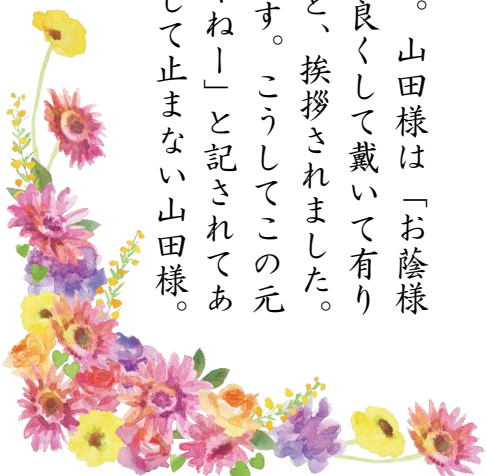 。山田様は「お陰様
良くして戴いて有り
と、挨拶されました。
す。こうしてこの元
ねー」と記されてあ
して止まない山田様。